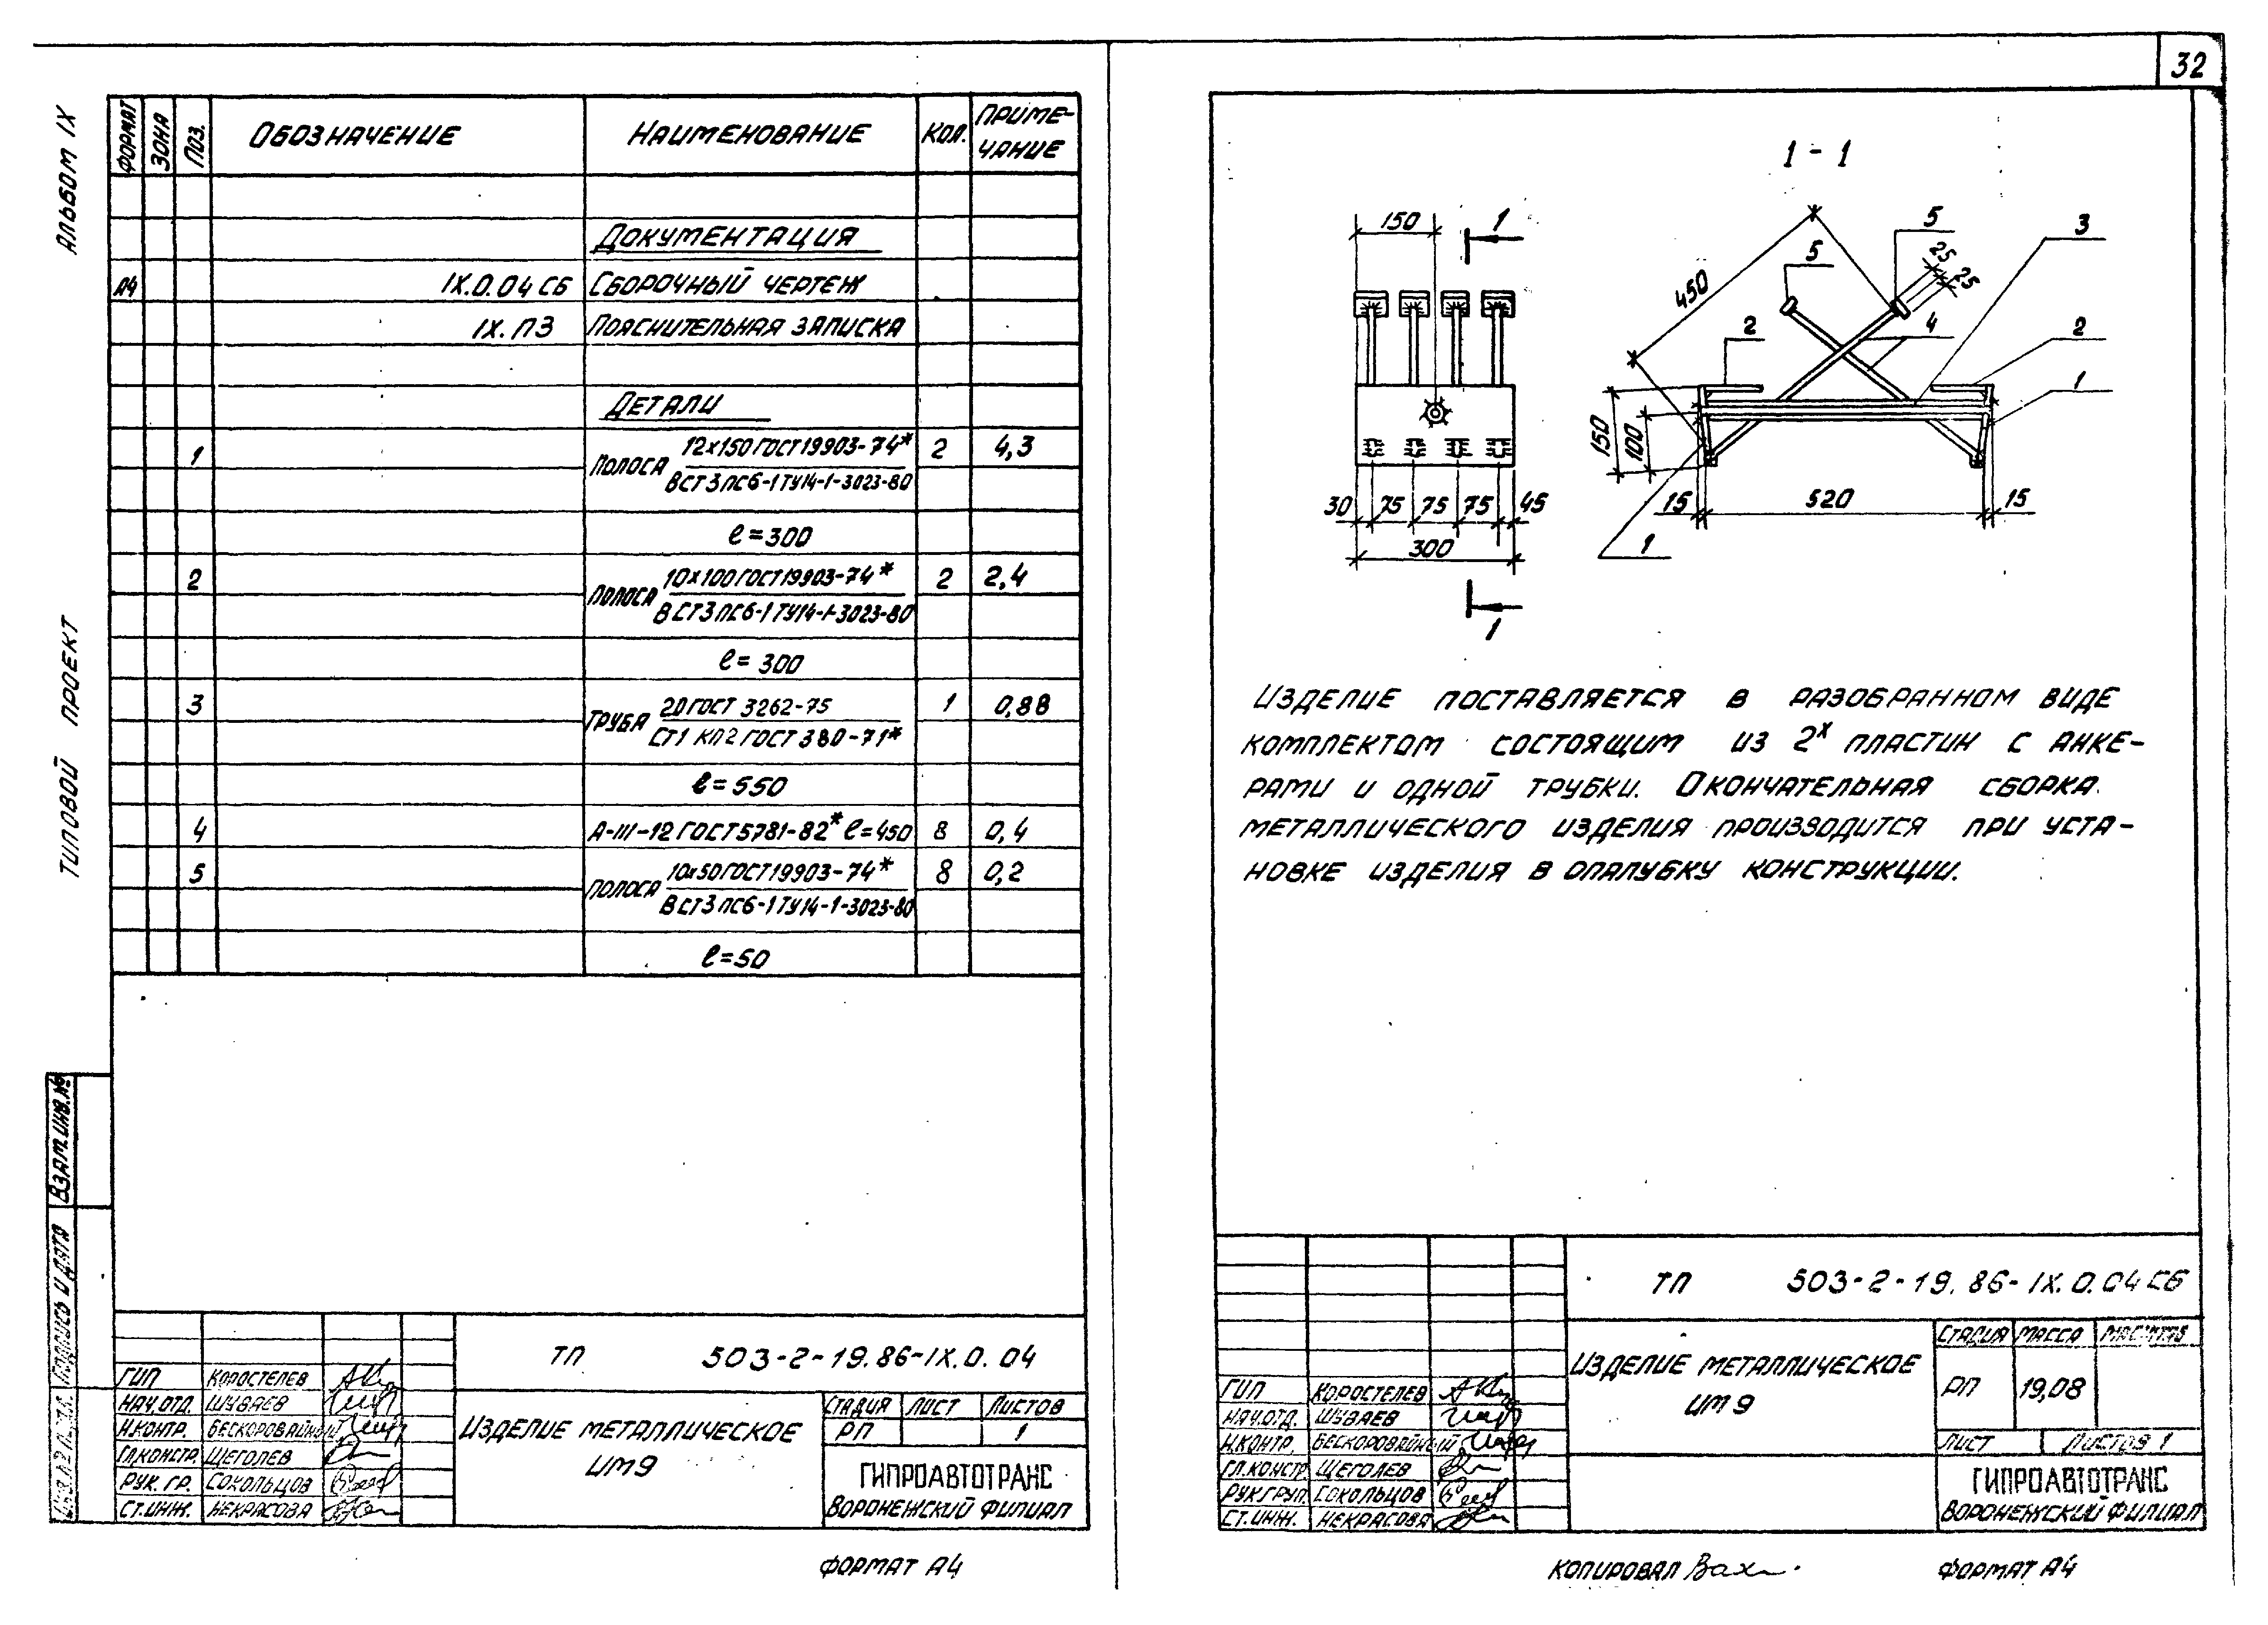 32
АЛЬБОМ IX
ТИПОВОЙ ПРОЕКТ
ФОРМАТ ЗОНА ПОЗ. ОБОЗНАЧЕНИЕ НАИМЕНОВАНИЕ КОЛ. ПРИМЕ-
ЧАНИЕ
ДОКУМЕНТАЦИЯ
А4 IX.0.04 СБ СБОРОЧНЫЙ ЧЕРТЕЖ
IX.ПЗ ПОЯСНИТЕЛЬНАЯ ЗАПИСКА
ДЕТАЛИ
1 ПОЛОСА 12х150 ГОСТ 19903-74* 2 4,3
ВСТ3ПС6-1 ТУ14-1-3023-80
ℓ=300
2 ПОЛОСА 10х100 ГОСТ 19903-74* 2 2,4
ВСТ3ПС6-1 ТУ14-1-3023-80
ℓ=300
3 ТРУБА 20 ГОСТ 3262-75 1 0,88
СТ1 КП2 ГОСТ 380-71*
ℓ=550
4 А-III-12 ГОСТ 5781-82* ℓ=450 8 0,4
5 ПОЛОСА 10х50 ГОСТ 19903-74* 8 0,2
ВСТ3ПС6-1 ТУ14-1-3023-80
ℓ=50
ВЗАМ.ИНВ.№
ПОДПИСЬ И ДАТА
ТП 503-2-19.86-IX.0.04
ГИП КОРОСТЕЛЕВ
НАЧ.ОТД. ШУВАЕВ
Н.КОНТР. БЕСКОРОВАЙНЫЙ
ГЛ.КОНСТР. ЩЕГОЛЕВ
РУК. ГР. СОКОЛЬЦОВ
СТ.ИНЖ. НЕКРАСОВА
ИЗДЕЛИЕ МЕТАЛЛИЧЕСКОЕ
ИМ9
СТАДИЯ ЛИСТ ЛИСТОВ
РП 1
ГИПРОАВТОТРАНС
ВОРОНЕЖСКИЙ ФИЛИАЛ
ФОРМАТ А4
1-1
150 1
30 75 75 75 45
300
1
450
5 5 3
25 25
2 4 2
1
150 100
15 520 15
1
ИЗДЕЛИЕ ПОСТАВЛЯЕТСЯ В РАЗОБРАННОМ ВИДЕ
КОМПЛЕКТОМ СОСТОЯЩИМ ИЗ 2х ПЛАСТИН С АНКЕ-
РАМИ И ОДНОЙ ТРУБКИ. ОКОНЧАТЕЛЬНАЯ СБОРКА
МЕТАЛЛИЧЕСКОГО ИЗДЕЛИЯ ПРОИЗВОДИТСЯ ПРИ УСТА-
НОВКЕ ИЗДЕЛИЯ В ОПАЛУБКУ КОНСТРУКЦИИ.
ТП 503-2-19.86-IX.0.04СБ
ГИП КОРОСТЕЛЕВ
НАЧ.ОТД. ШУВАЕВ
Н.КОНТР. БЕСКОРОВАЙНЫЙ
ГЛ.КОНСТР. ЩЕГОЛЕВ
РУК.ГРУП. СОКОЛЬЦОВ
СТ.ИНЖ. НЕКРАСОВА
ИЗДЕЛИЕ МЕТАЛЛИЧЕСКОЕ
ИМ9
СТАДИЯ МАССА МАСШТАБ
РП 19,08
ЛИСТ ЛИСТОВ 1
ГИПРОАВТОТРАНС
ВОРОНЕЖСКИЙ ФИЛИАЛ
КОПИРОВАЛ
ФОРМАТ А4